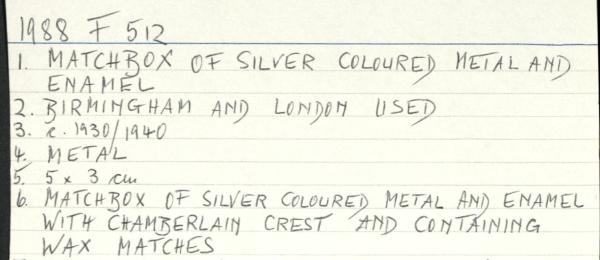 1988 F 512
1. MATCHBOX OF SILVER COLOURED METAL AND
ENAMEL
2. BIRMINGHAM AND LONDON USED
3. c. 1930/1940
4. METAL
5. 5 x 3 cm
6. MATCHBOX OF SILVER COLOURED METAL AND ENAMEL
WITH CHAMBERLAIN CREST AND CONTAINING
WAX MATCHES